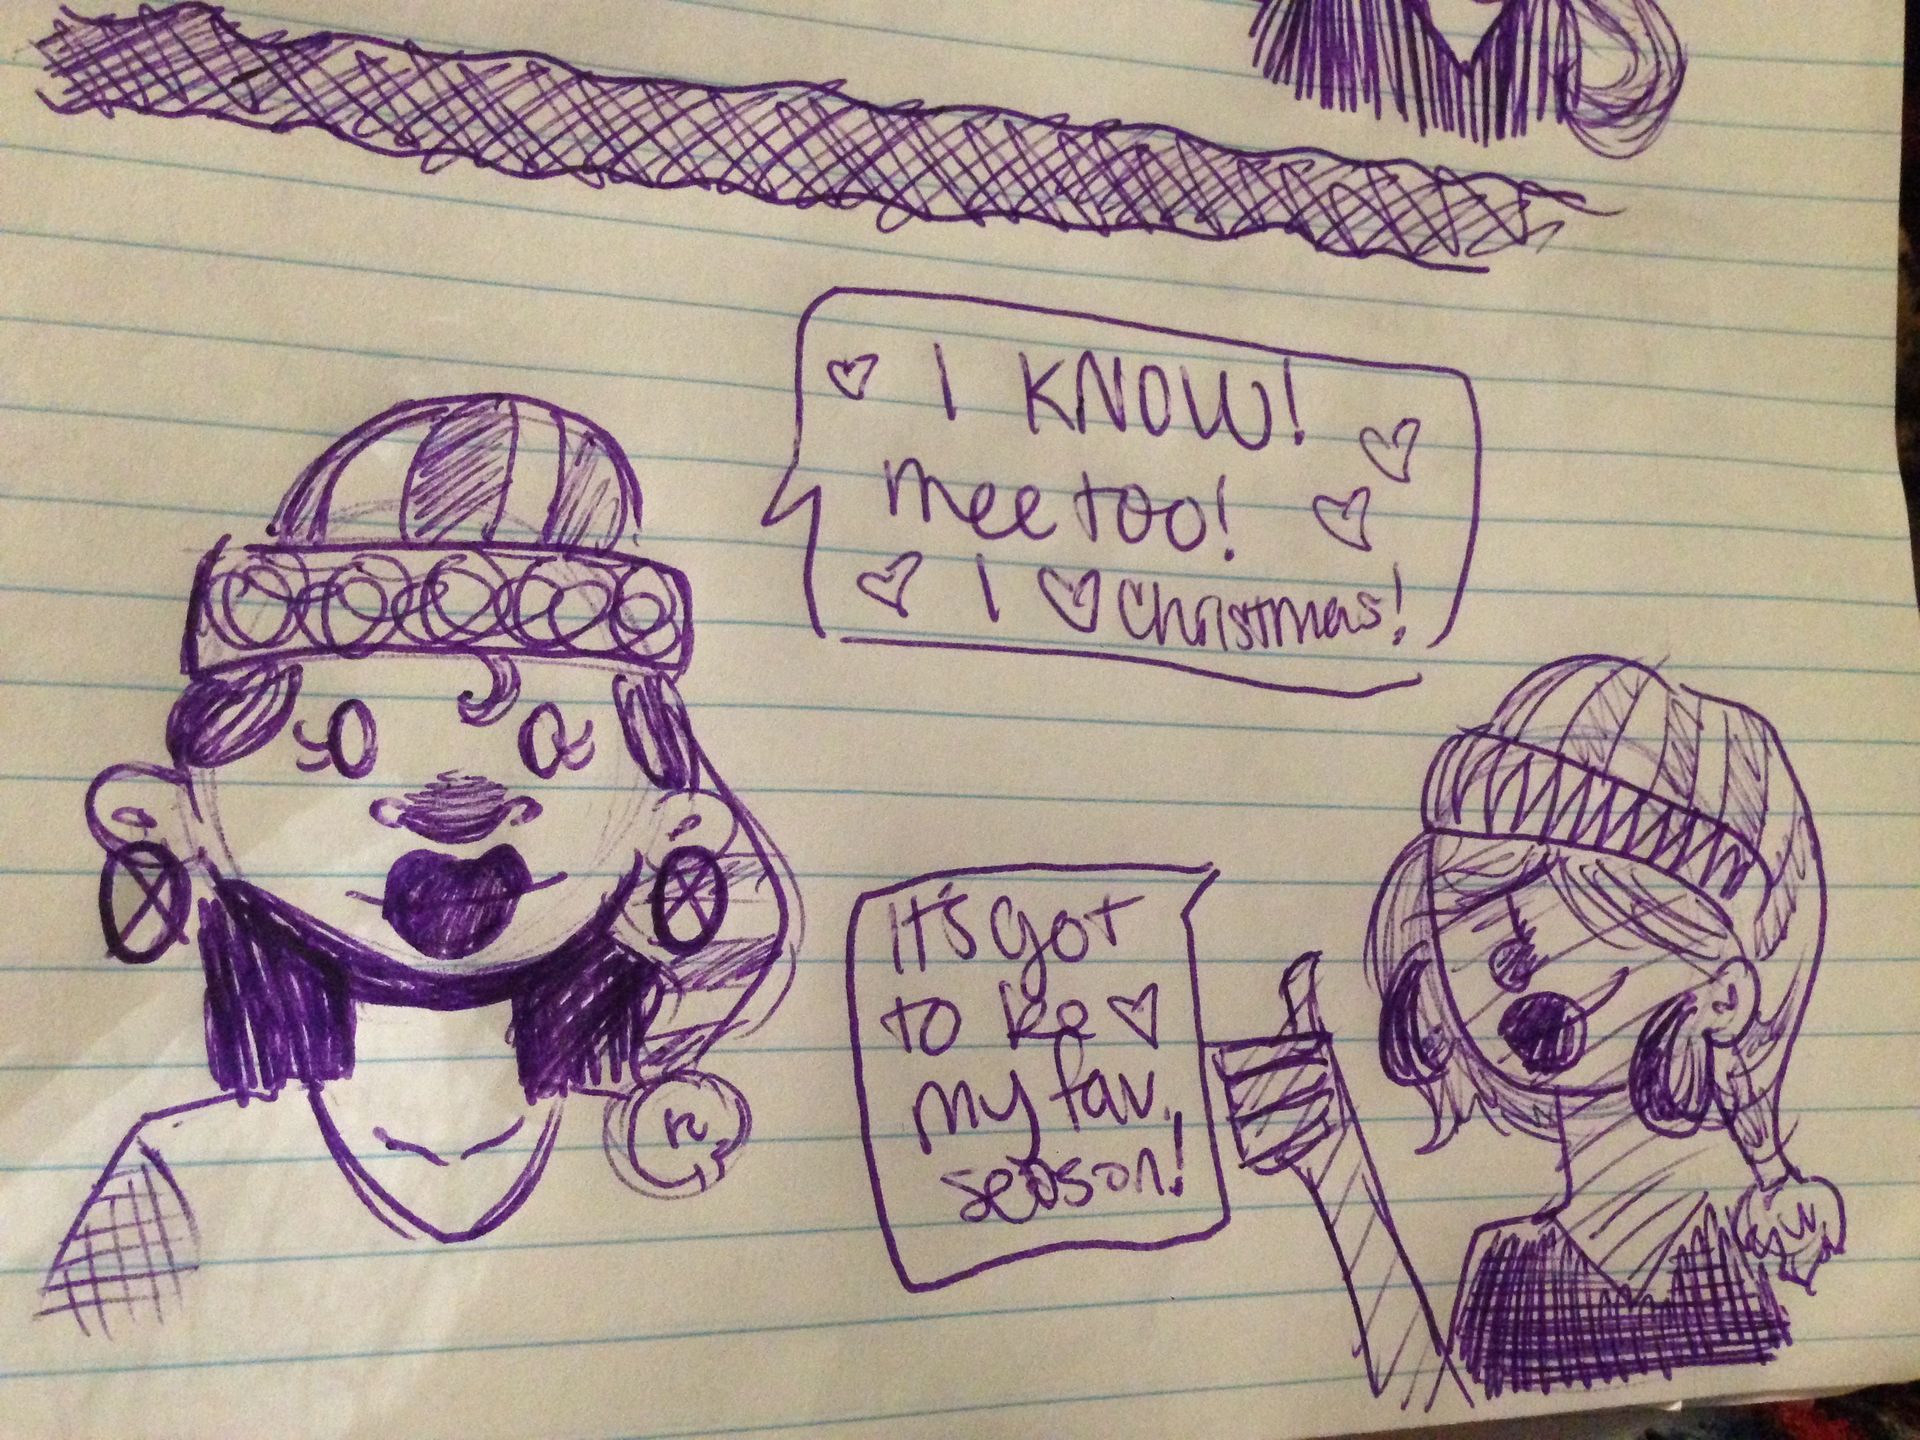 ♡ I KNOW!
mee too! ♡ ♡
♡ I ♡ Christmas!
It's got
to be ♡
my fav.
season!